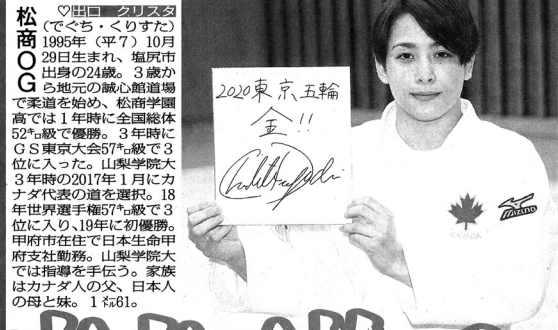 松商OG
♡出口 クリスタ
(でぐち・くりすた)
1995年(平7)10月
29日生まれ、塩尻市
出身の24歳。3歳か
ら地元の誠心館道場
で柔道を始め、松商学園
高では1年時に全国総体
52㌔級で優勝。3年時に
GS東京大会57㌔級で3
位に入った。山梨学院大
3年時の2017年1月にカ
ナダ代表の道を選択。18
年世界選手権57㌔級で3
位に入り、19年に初優勝。
甲府市在住で日本生命甲
府支社勤務。山梨学院大
では指導を手伝う。家族
はカナダ人の父、日本人
の母と妹。1㍍61。
2020東京五輪
金!!
CANADA
MIZUNO